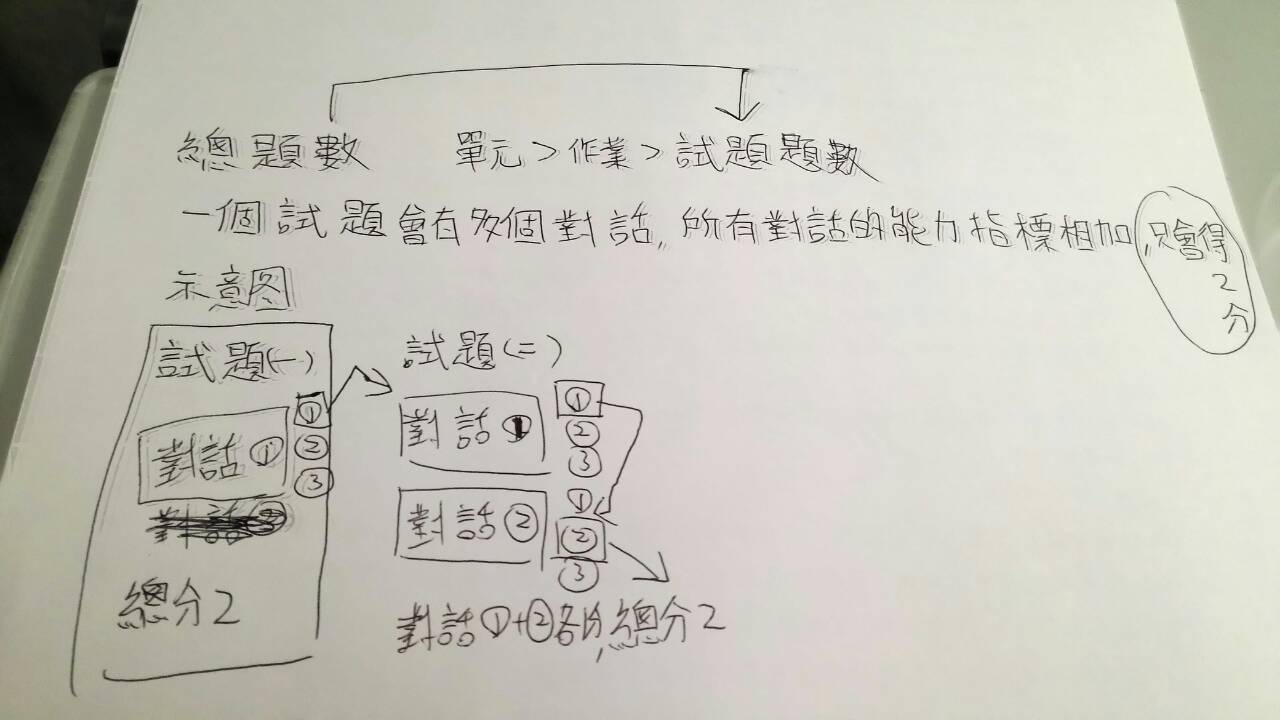 總題數 單元>作業>試題題數
一個試題會有多個對話,所有對話的能力指標相加,只會得
2
分
示意图
試題(一)
①
對話① ②
③
總分2
試題(二)
對話① ①
②
③
對話② ①
②
③
對話①+②各1分,總分2